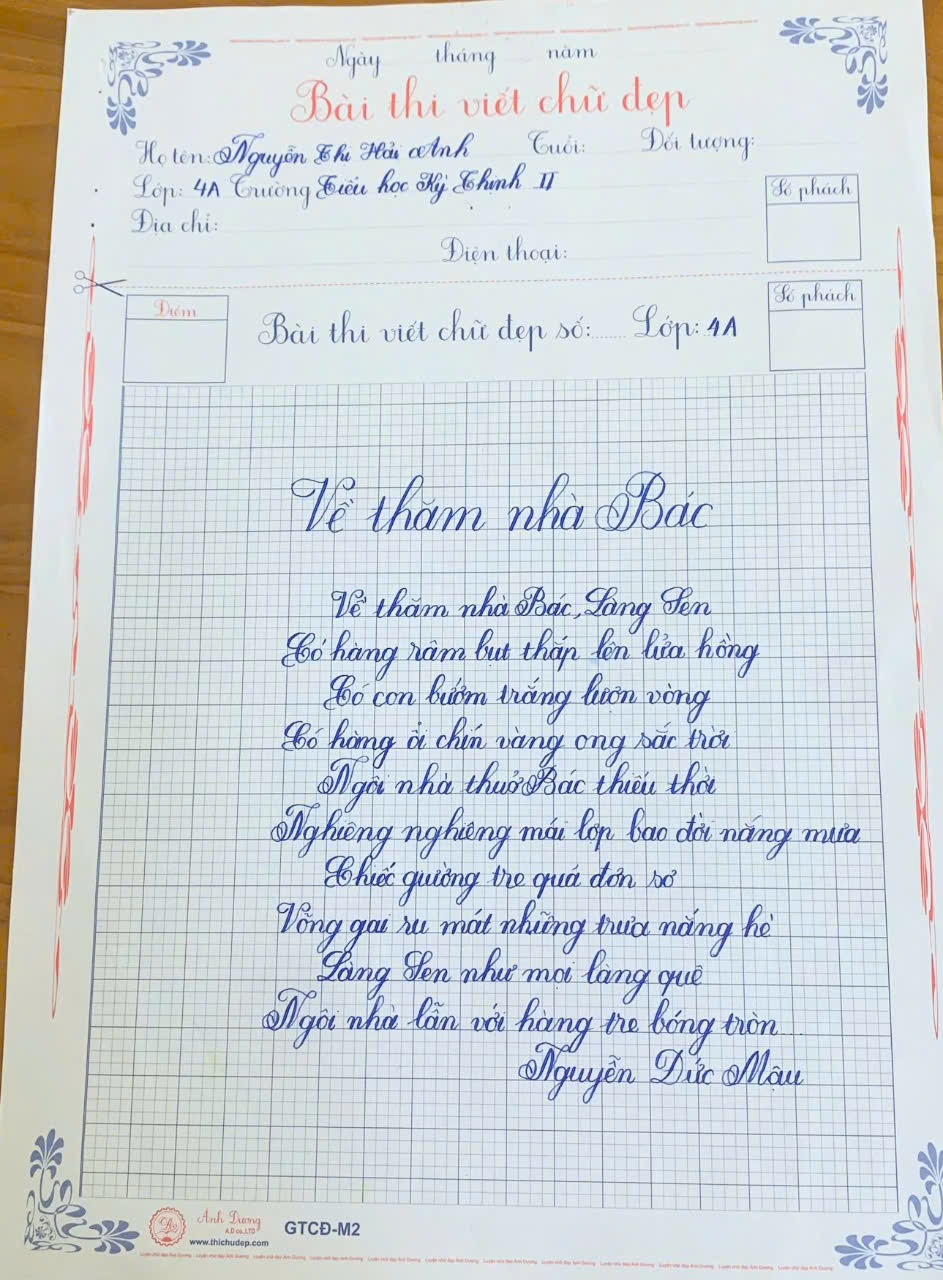 Ngày tháng năm
Bài thi viết chữ đẹp
Họ tên: Nguyễn Thị Hải Anh Tuổi: Đối tượng:
Lớp: 4A Trường Tiểu học Kỳ Thịnh II
Số phách
Địa chỉ:
Điện thoại:
Điểm
Bài thi viết chữ đẹp số:...... Lớp: 4A
Số phách
Về thăm nhà Bác
Về thăm nhà Bác, Làng Sen
Có hàng râm bụt thắp lên lửa hồng
Có con bướm trắng lượn vòng
Có hàng ổi chín vàng ong sắc trời
Ngôi nhà thuở Bác thiếu thời
Nghiêng nghiêng mái lợp bao đời nắng mưa
Chiếc giường tre quá đơn sơ
Võng gai ru mát những trưa nắng hè
Làng Sen như mọi làng quê
Ngôi nhà lẫn với hàng tre bóng tròn
Nguyễn Đức Mậu
Ánh Dương
A.D co.,LTD
www.thichudep.com
GTCĐ-M2